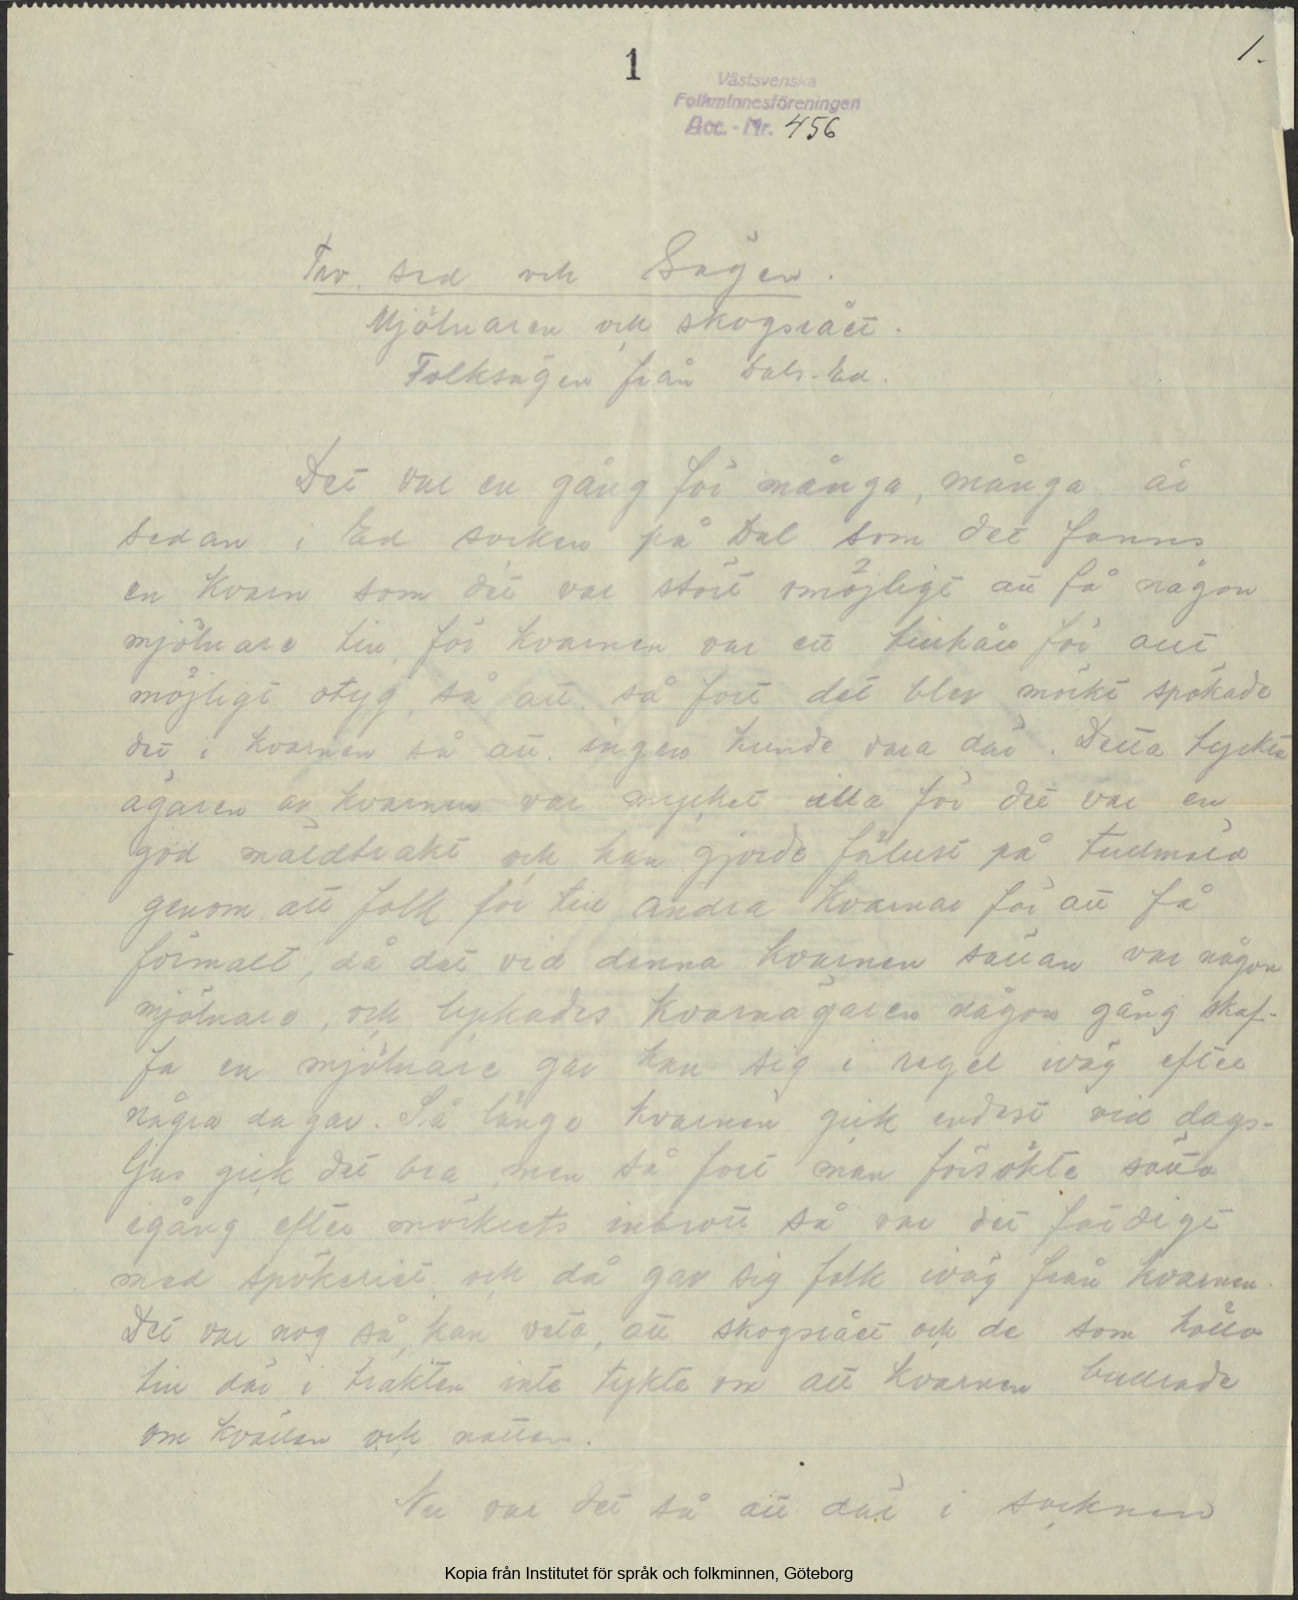 1
1.
Västsvenska
Folkminnesföreningen
Acc.-Nr. 456
Tro, sed och Sägen.
Mjölnaren och skogsrået.
Folksägen från Dals-Ed.
Det var en gång för många, många år
sedan i Ed socken på Dal som det fanns
en kvarn som det var stört omöjligt att få någon
mjölnare till, för kvarnen var ett tillhåll för allt
möjligt otyg, så att så fort det blev mörkt spökade
det i kvarnen så att ingen kunde vara där. Detta tyckte
ägaren av kvarnen var mycket illa för det var en
god mäldtrakt och han gjorde förlust på tullmäld
genom att folk för till andra kvarnar för att få
förmalt, då det vid denna kvarnen sällan var någon
mjölnare, och lyckades kvarnägaren någon gång skaf-
fa en mjölnare gav han sig i regel iväg efter
några dagar. Så länge kvarnen gick endast vid dags-
ljus gick det bra, men så fort man försökte sätta
igång efter mörkrets inbrott så var det färdigt
med spökeriet och då gav sig folk iväg från kvarnen.
Det var nog så, kan veta, att skogsrået och de som hålla
till där i trakten inte tykte om att kvarnen bullrade
om kvällen och natten.
Nu var det så att där i socknen
Kopia från Institutet för språk och folkminnen, Göteborg